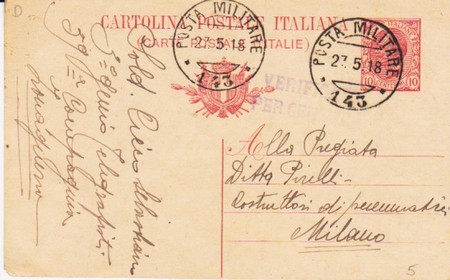 CARTOLINA POSTALE ITALIANA
(CARTE POSTALE D'ITALIE)
POSTA MILITARE
27.5.18
143
POSTA MILITARE
27.5.18
143
VERIFI
PER CEN
10 10
Sold.
3° Genio Telegrafisti
Compagnia
Alla Pregiata
Ditta Pirelli
Costruttori di pneumatici
Milano
5